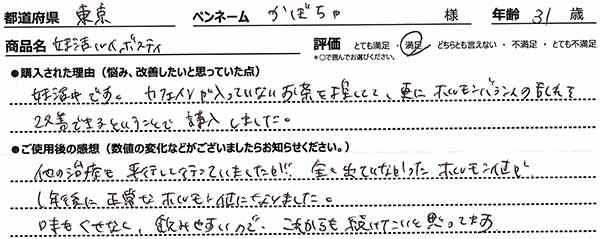 都道府県 東京 ペンネーム かぼちゃ 様 年齢 31 歳
商品名 妊活ルイボスティ 評価 とても満足 ・ 満足 ・ どちらとも言えない ・ 不満足 ・ とても不満足
*○で囲んでお選びください。
●購入された理由（悩み、改善したいと思っていた点）
妊活中です。カフェインが入っていないお茶を探してて、更にホルモンバランスの乱れを
改善できるということで購入しました。
●ご使用後の感想（数値の変化などがございましたらお知らせください。）
他の治療も平行して行っていましたが、全く出ていなかったホルモン値が
1年後に正常なホルモン値になりました。
味もくせなく、飲みやすいので、これからも続けたいと思ってます